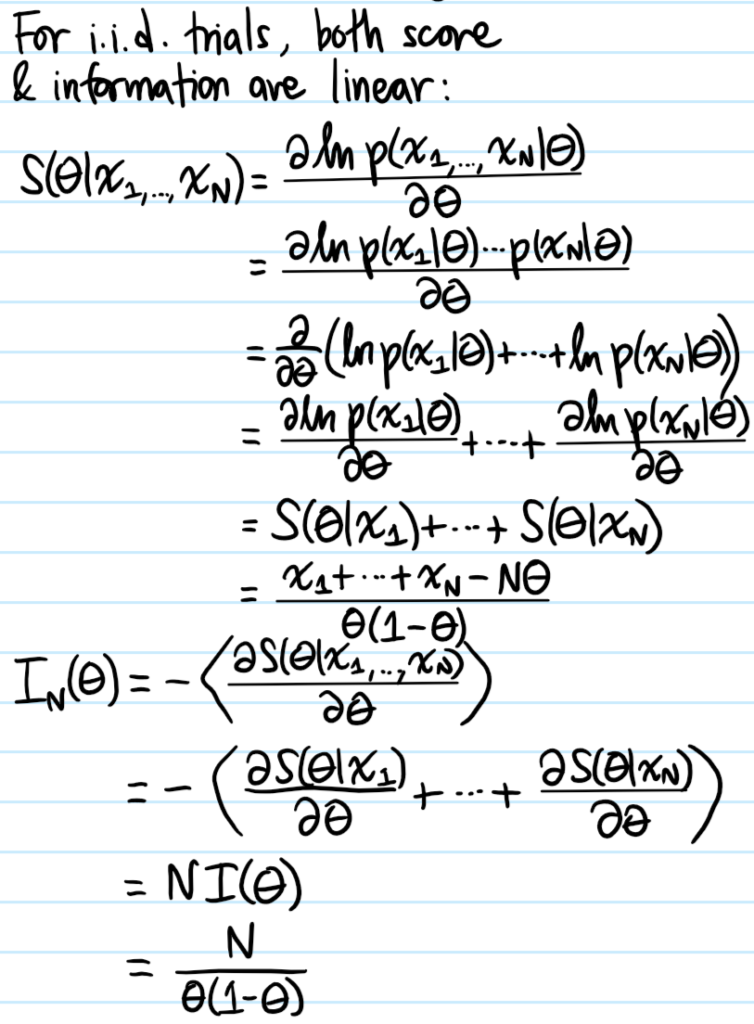 For i.i.d. trials, both score
& information are linear:
S(θ|x₁,...,x_N) = ∂ ln p(x₁,...,x_N|θ) / ∂θ
= ∂ ln p(x₁|θ)···p(x_N|θ) / ∂θ
= ∂/∂θ (ln p(x₁|θ)+···+ln p(x_N|θ))
= ∂ ln p(x₁|θ)/∂θ +···+ ∂ ln p(x_N|θ)/∂θ
= S(θ|x₁)+···+ S(θ|x_N)
= (x₁+···+x_N − Nθ) / θ(1−θ)
I_N(θ) = −⟨∂S(θ|x₁,...,x_N)/∂θ⟩
= −⟨∂S(θ|x₁)/∂θ +···+ ∂S(θ|x_N)/∂θ⟩
= N I(θ)
= N / θ(1−θ)